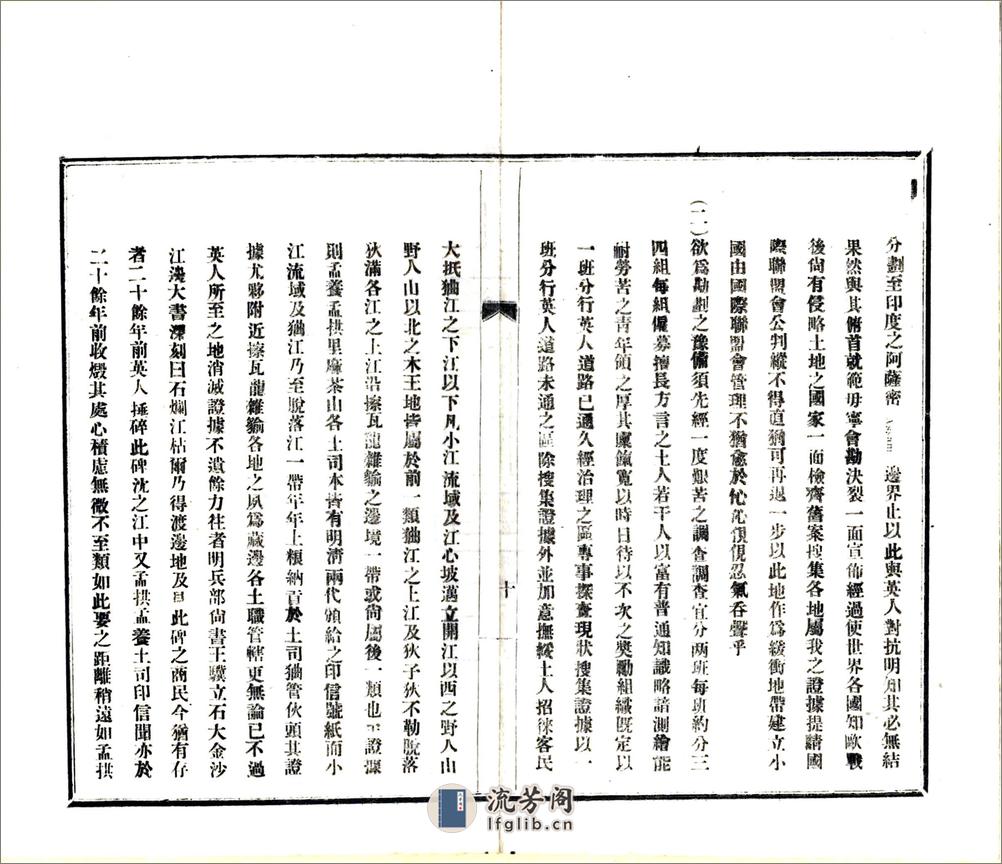 分劃至印度之阿薩密 Assam 邊界止以此與英人對抗明知其必無結
果然與其俯首就範毋寧會勘決裂一面宣佈經過使世界各國知歐戰
後尙有侵略土地之國家一面檢齊舊案搜集各地屬我之證據提請國
際聯盟會公判縱不得直猶可再退一步以此地作爲緩衝地帶建立小
國由國際聯盟會管理不猶愈於忙沁俔俔忍氣吞聲乎
(二)欲爲勘劃之豫備須先經一度艱苦之調查調查宜分兩班每班約分三
四組每組僱募擅長方言之土人若干人以富有普通知識略諳測繪能
耐勞苦之靑年領之厚其廩餼寬以時日待以不次之獎勵組織旣定以
一班分行英人道路已通久經治理之區專事探查現狀搜集證據以一
班分行英人道路未通之區除搜集證據外並加意撫綏土人招徠客民
十
大抵㺄江之下江以下凡小江流域及江心坡邁立開江以西之野人山
野人山以北之木王地皆屬於前一類㺄江之上江及狄子狄不勒脫落
狄滿各江之上江沿擦瓦龍雜貐之邊境一帶或尙屬後一類也至證據
則孟養孟拱里麻茶山各土司本皆有明淸兩代頒給之印信號紙而小
江流域及㺄江乃至脫落江一帶年年上糧納貢於土司㺄管伙頭其證
據尤夥附近擦瓦龍雜貐各地之夙爲藏邊各土職管轄更無論已不過
英人所至之地消滅證據不遺餘力往者明兵部尙書王驥立石大金沙
江邊大書深刻曰石爛江枯爾乃得渡邊地及見此碑之商民今猶有存
者二十餘年前英人捶碎此碑沈之江中又孟拱孟養土司印信聞亦於
二十餘年前收燬其處心積慮無微不至類如此要之距離稍遠如孟拱
流芳阁
lfglib.cn